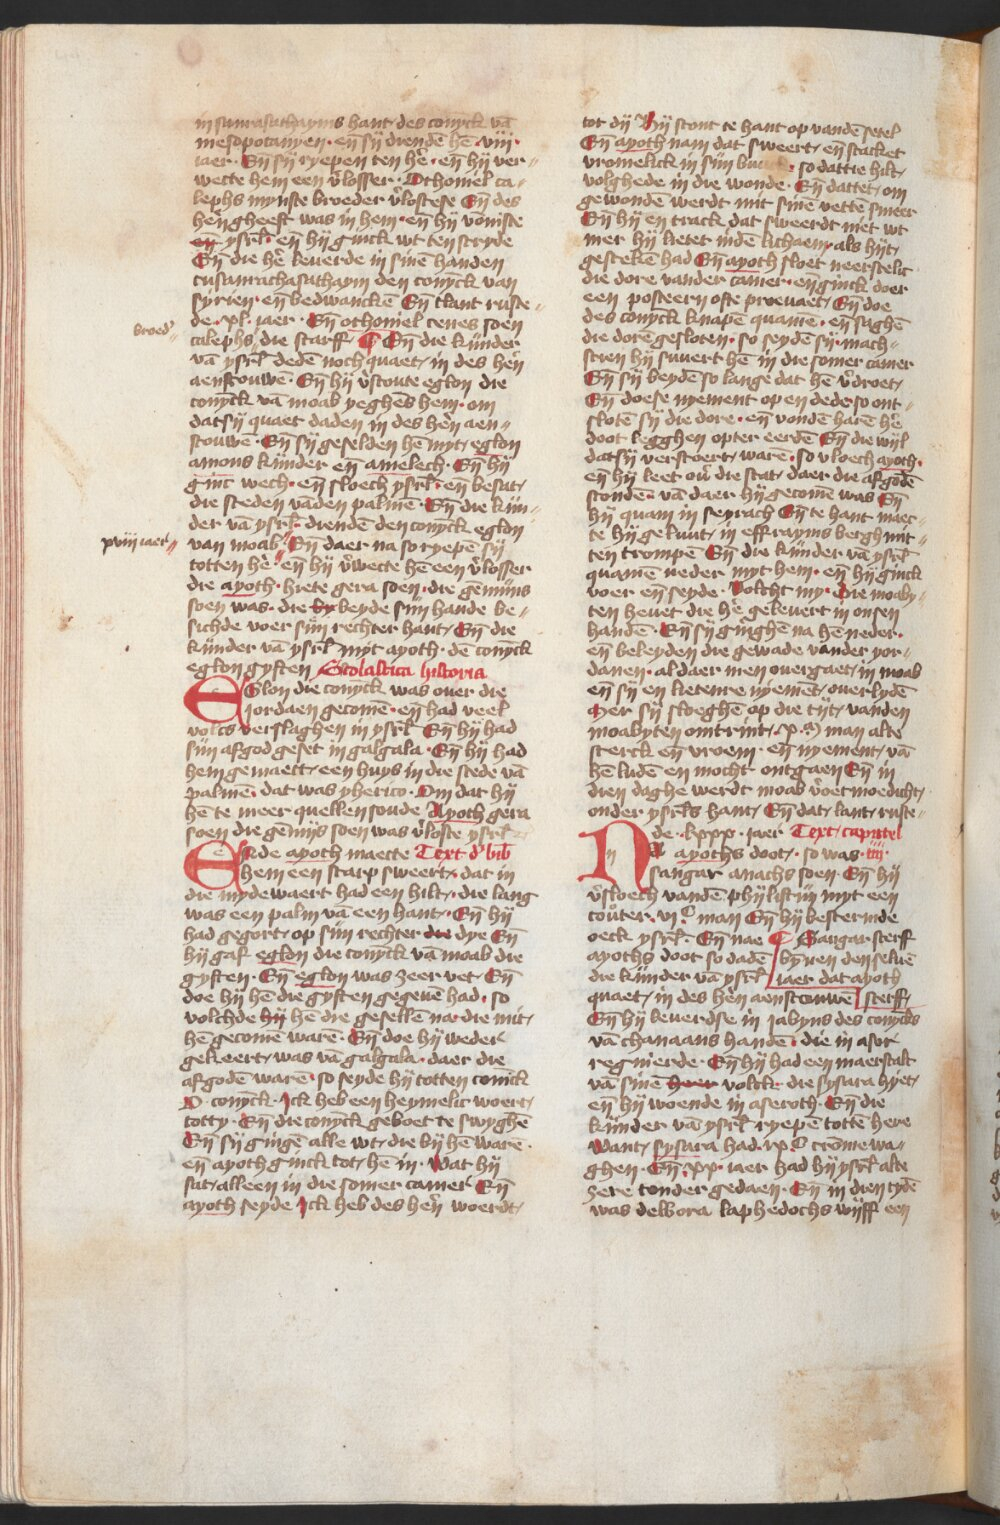 in sunrasathayms hant des conyck vā
mesopotamyen · en̄ sij diendē hē · viij ·
iaer · En̄ sij ryepen ten hē · en̄ hij ver-
wecte hem een v̓losser · Othoniel ca-
lephs mynste broeder v̓lostese En̄ des
hen̄ gheest was in hem · en̄ hij vōniste
en̄ ysrl̄ · en̄ hij ginck wt ten stryde
En̄ die hē leuerde in sinē handen
cusanrachasathaym den conyck van
syrien · en̄ bedwanckē En̄ tlant ruste-
de · xl · iaer · En̄ othoniel cenes soen
broed̓
calephs die starff · En̄ die kijnder
vā ysrl̄ dedē noch quaet in des hen̄
aenscouwē · En̄ hij v̓stoute eglon die
conyck vā moab yeghēs hem · om
dat sij quaet daden in des hen̄ aen-
scouwē · En̄ sij geselden hē myt eglon
amons kijnder en̄ amelech · En̄ hij
ginc wech · en̄ sloech ysrl̄ · en̄ besat
die steden vāden palmē · En̄ die kijn-
der vā ysrl̄ · diendē den conyck eglon
xviij iaer
van moab · En̄ daer na so ryepē sij
totten hē · en̄ hij v̓wecte hē een v̓losser
die ayoth · hiete gera soen · die gēmijns
soen was · die hy beyde sijn hande be-
sichde voer sijn rechter hant · En̄ die
kijnder vā ysrl̄ myt ayoth · dē conyck
eglon gyften Scolastica historia
EGlon die conyck was ouer die
iordaen gecomē · en̄ had veel
volcs verslaghen in ysrl̄ En̄ hij had
sijn afgod geset in galgala · En̄ hij had
hem gemaect een huys in die stede vā
palmē · dat was yherico · Om dat hij
hē te meer quellen soude Ayoth gera
soen die gemijs soen was v̓loste ysrl̄
ENde ayoth maecte Text d̓ bib̄
hem een scarp sweert · dat in
die mydewaert had een hilt · die lang
was een palm vā een hant · En̄ hij
had gegort op sijn rechter die dye En̄
hij gaf eglon die conyck vā moab die
gyften · En̄ eglon was zeer vet · En̄
doe hij hē die gyften gegeuē had · so
volchde hij hē die gesellē na die mit
hē gecomē warē · En̄ doe hij weder
gekeert was vā galgala · daer die
afgodē warē · so seyde hij totten conick
O · conyck · Ick heb een heymelic woert
tot ty · En̄ die conyck geboet te swyghē
En̄ sij gingē alle wt · die bij hē warē ·
en̄ ayoth ginck tot hē in · Wat hij
sat alleen in die somer camer En̄
ayoth seyde Ick heb des hen̄ woerdt
tot dij Hij stont te hant op vandē setel
En̄ ayoth nam dat sweert en̄ stacket
vromelick in sijn · so dattie hilt
volghede in die wonde · En̄ dattet om
gewondē werdt mit sinē vettē smeer
En̄ hij en track dat sweerdt niet wt
mer hij lietet indē lichaem als hijt
gestekē had En̄ ayoth sloet neerstelic
die dore vander camer · en̄ ginck doer
een posteern ofte prouaet · En̄ doe
des conyck knapē quamē · en̄ saghē
die dorē gesloten · so seydē sij · mach-
scien hij suuert hē in die somer camer
En̄ sij beydē so lange dat hē v̓droet
En̄ doese nyement op en dede so ont-
slotē sij die dore · en̄ vondē harē hē
doot legghen opter eerdē En̄ die wijl
dat sij verstoert warē · so vloech ayoth ·
en̄ hij leet ou̓ die stat daer die afgodē
stondē · vā daer hij gecomē was En̄
hij quam in seyrach En̄ te hant maec-
te hij geluut in effrayms bergh mit-
ten trompē En̄ die kijnder vā ysrl̄
quamē neder myt hem · en̄ hij ginck
voer en̄ seyde · Volcht my · Die moaby-
ten heuet die hē geleuert in onsen
handē · En̄ sij ginghē na hē neder ·
en̄ beleyden die gewade vander yor-
danen · al daer men ouergaet in moab
en̄ sij en lietenre nyemēt ouerlydē
Mer sij sloeghē op die tijt vanden
moabyten omtrint · x · ᴍ man alte
sterck en̄ vroem · en̄ nyement vā
hē ludē en mocht ontgaen En̄ in
dien daghe werdt moab v̓oetmoedicht
onder ysrl̄s hant · En̄ dat lant ruste-
de · lxxx · iaer Text capittel
NA ayoths doot · so was · iiij ·
sangar anachs soen · En̄ hij
v̓sloech vandē phylistijn myt een
couter · vi c̄ man En̄ hij bescermde
oeck ysrl̄ · En̄ nae Sangar sterff
ayoths doot so dadē bynen den seluē
die kijnder vā ysrl̄ iaer dat ayoth
quaet in des hen̄ aenscouwē sterff
En̄ hij leuerdse in Jabyns des conycks
vā chanaans handē · die in asor
regnierde · En̄ hij had een maerscalc
vā sinē heer volck · die sysara hyet
en̄ hij woende in aseroth · En̄ die
kijnder vā ysrl̄ ryepē tottē here
Want sysara had · ix · c̄ cromē wa-
ghen · En̄ · xx · iaer had hij ysrl̄ alte
zere tonder gedaen · En̄ in dien tydē
was delbora laphedochs wijff een